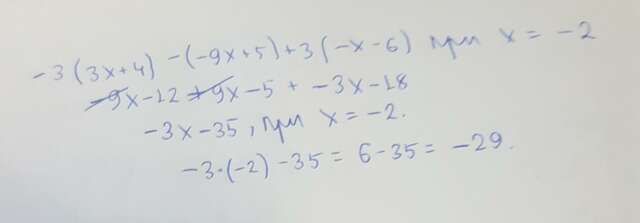 -3(3x+4) -(-9x+5)+3(-x-6) при x = -2
-9x-12 +9x-5 + -3x-18
-3x-35, при x = -2.
-3·(-2) -35 = 6-35 = -29.